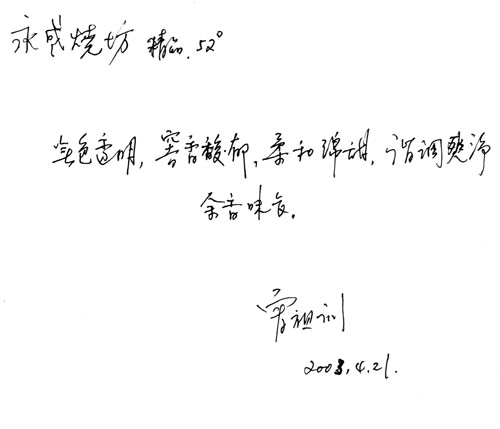 永盛燒坊 精品.52°
無色透明,窖香馥郁,柔和绵甜,谐调爽净
余香味长.
曾祖训
2003.4.21.